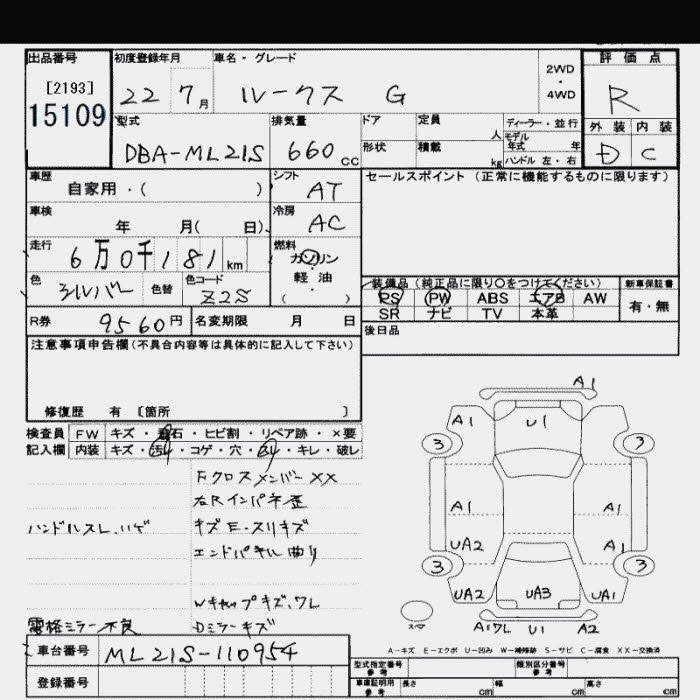 出品番号 初度登録年月 車名・グレード 評価点
[2193] 2WD・4WD
15109 22 7月 ルークス G R
型式 排気量 ドア 定員 人 ディーラー・並行 外装 内装
モデル年式 年
DBA-ML21S 660cc 形状 積載 kg ハンドル 左・右 D C
車歴 シフト セールスポイント (正常に機能するものに限ります)
自家用・( ) AT
車検 冷房
年 月( 日) AC
走行 燃料
6万0千181km ガソリン
色 色替 色コード 軽・油 装備品 (純正品に限り○をつけてください) 新車保証書
シルバー Z2S ( ) PS PW ABS エアB AW 有・無
SR ナビ TV 本革
R券 9560円 名変期限 月 日 後日品
注意事項申告欄 (不具合内容等は具体的に記入して下さい)
修復歴 有 [箇所 ]
検査員 FW キズ・飛石・ヒビ割・リペア跡・×要
記入欄 内装 キズ・汚れ・コゲ・穴・スレ・キレ・破レ
Fクロスメンバー XX
右Rインパネ歪
ハンドルスレ.ハゲ キズE.スリキズ
エンドパネル曲り
Wキャップキズ.ワレ
電格ミラー不良 Dミラーキズ
A1
A1 U1
3 3
A1 A1
UA2 A1
3 3
UA2 UA3 UA1
スペア A1ワレ U1 A2
A-キズ E-エクボ U-凹み W-補修跡 S-サビ C-腐食 XX-交換済
車台番号 ML21S-110954
型式指定番号 参考 類別区分番号 参考
登録番号 車庫証明用 参考 長さ cm 幅 cm 高さ cm